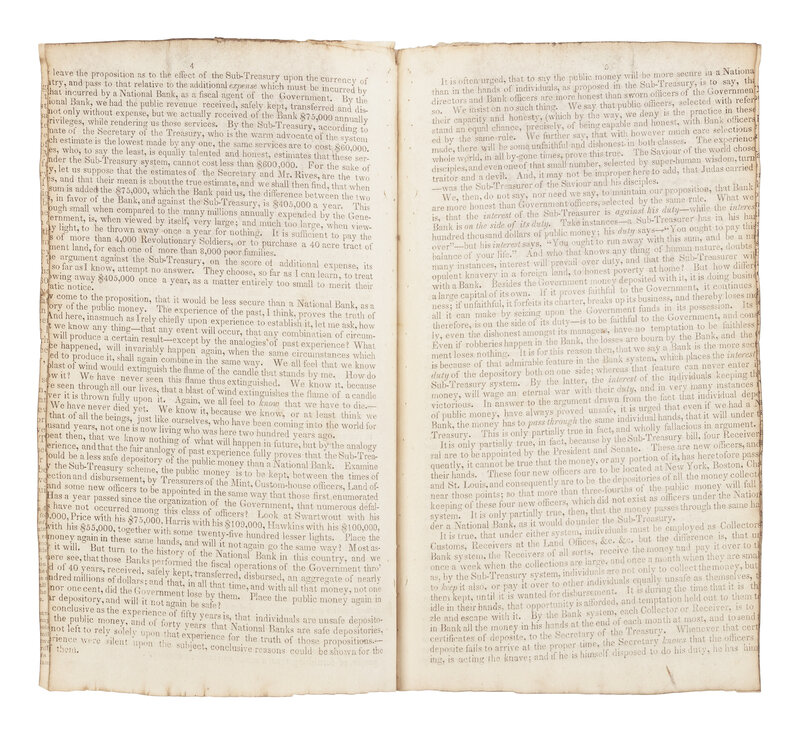 4
leave the proposition as to the effect of the Sub-Treasury upon the currency of
try, and pass to that relative to the additional expense which must be incurred by
hat incurred by a National Bank, as a fiscal agent of the Government. By the
ional Bank, we had the public revenue received, safely kept, transferred and dis-
not only without expense, but we actually received of the Bank $75,000 annually
rivileges, while rendering us those services. By the Sub-Treasury, according to
ate of the Secretary of the Treasury, who is the warm advocate of the system
ch estimate is the lowest made by any one, the same services are to cost $60,000.
es, who, to say the least, is equally talented and honest, estimates that these ser-
nder the Sub-Treasury system, cannot cost less than $600,000. For the sake of
y, let us suppose that the estimates of the Secretary and Mr. Rives, are the two
s, and that their mean is about the true estimate, and we shall then find, that when
sum is added the $75,000, which the Bank paid us, the difference between the two
, in favor of the Bank, and against the Sub-Treasury, is $405,000 a year. This
ough small when compared to the many millions annually expended by the Gene-
ernment, is, when viewed by itself, very large; and much too large, when view-
y light, to be thrown away once a year for nothing. It is sufficient to pay the
s of more than 4,000 Revolutionary Soldiers, or to purchase a 40 acre tract of
ment land, for each one of more than 8,000 poor families.
e argument against the Sub-Treasury, on the score of additional expense, its
so far as I know, attempt no answer. They choose, so far as I can learn, to treat
wing away $405,000 once a year, as a matter entirely too small to merit their
atic notice.
w come to the proposition, that it would be less secure than a National Bank, as a
ory of the public money. The experience of the past, I think, proves the truth of
And here, inasmuch as I rely chiefly upon experience to establish it, let me ask, how
t we know any thing—that any event will occur, that any combination of circum-
will produce a certain result—except by the analogies of past experience? What
e happened, will invariably happen again, when the same circumstances which
d to produce it, shall again combine in the same way. We all feel that we know
blast of wind would extinguish the flame of the candle that stands by me. How do
ow it? We have never seen this flame thus extinguished. We know it, because
e seen through all our lives, that a blast of wind extinguishes the flame of a candle
ver it is thrown fully upon it. Again, we all feel to know that we have to die.—
We have never died yet. We know it, because we know, or at least think we
that of all the beings, just like ourselves, who have been coming into the world for
usand years, not one is now living who was here two hundred years ago.
eat then, that we know nothing of what will happen in future, but by the analogy
erience, and that the fair analogy of past experience fully proves that the Sub-Trea-
ould be a less safe depository of the public money than a National Bank. Examine
the Sub-Treasury scheme, the public money is to be kept, between the times of
ection and disbursement, by Treasurers of the Mint, Custom-house officers, Land of-
and some new officers to be appointed in the same way that those first enumerated
Has a year passed since the organization of the Government, that numerous defal-
s have not occurred among this class of officers? Look at Swartwout with his
0,000, Price with his $75,000, Harris with his $109,000, Hawkins with his $100,000,
with his $55,000, together with some twenty-five hundred lesser lights. Place the
money again in these same hands, and will it not again go the same way? Most as-
it will. But turn to the history of the National Bank in this country, and we
here see, that those Banks performed the fiscal operations of the Government thro'
d of 40 years, received, safely kept, transferred, disbursed, an aggregate of nearly
ndred millions of dollars; and that, in all that time, and with all that money, not one
nor one cent, did the Government lose by them. Place the public money again in
ar depository, and will it not again be safe?
conclusive as the experience of fifty years is, that individuals are unsafe deposito-
the public money, and of forty years that National Banks are safe depositories,
ot left to rely solely upon that experience for the truth of those propositions—
rience were silent upon the subject, conclusive reasons could be shown for the
them.
5
It is often urged, that to say the public money will be more secure in a Nationa
than in the hands of individuals, as proposed in the Sub-Treasury, is to say, tha
directors and Bank officers are more honest than sworn officers of the Government
so. We insist on no such thing. We say that public officers, selected with refer
their capacity and honesty, (which by the way, we deny is the practice in these
stand an equal chance, precisely, of being capable and honest, with Bank officers
ed by the same rule. We further say, that with however much care selections
made, there will be some unfaithful and dishonest in both classes. The experience
whole world, in all by-gone times, prove this true. The Saviour of the world chose
disciples, and even one of that small number, selected by super-human wisdom, turn
traitor and a devil. And, it may not be improper here to add, that Judas carried t
—was the Sub-Treasurer of the Saviour and his disciples.
We, then, do not say, nor need we say, to maintain our proposition, that Bank
are more honest than Government officers, selected by the same rule. What we
is, that the interest of the Sub-Treasurer is against his duty—while the interest
Bank is on the side of its duty. Take instances—a Sub-Treasurer has in his han
hundred thousand dollars of public money; his duty says—"You ought to pay this
over"—but his interest says, "You ought to run away with this sum, and be a n
balance of your life." And who that knows any thing of human nature, doubts
many instances, interest will prevail over duty, and that the Sub-Treasurer will
opulent knavery in a foreign land, to honest poverty at home? But how differ
with a Bank. Besides the Government money deposited with it, it is doing busin
a large capital of its own. If it proves faithful to the Government, it continues
ness; if unfaithful, it forfeits its charter, breaks up its business, and thereby loses mo
all it can make by seizing upon the Government funds in its possession. Its
therefore, is on the side of its duty—is to be faithful to the Government, and cons
ly, even the dishonest amongst its managers, have no temptation to be faithless
Even if robberies happen in the Bank, the losses are bourn by the Bank, and the
ment loses nothing. It is for this reason then, that we say a Bank is the more sec
is because of that admirable feature in the Bank system, which places the interest
duty of the depository both on one side; whereas that feature can never enter in
Sub-Treasury system. By the latter, the interest of the individuals keeping the
money, will wage an eternal war with their duty, and in very many instances
victorious. In answer to the argument drawn from the fact that individual dep
of public money, have always proved unsafe, it is urged that even if we had a N
Bank, the money has to pass through the same individual hands, that it will under t
Treasury. This is only partially true in fact, and wholly fallacious in argument.
It is only partially true, in fact, because by the Sub-Treasury bill, four Receivers
ral are to be appointed by the President and Senate. These are new officers, and
quently, it cannot be true that the money, or any portion of it, has heretofore pass
their hands. These four new officers are to be located at New York, Boston, Cha
and St. Louis, and consequently are to be the depositories of all the money collect
near those points; so that more than three-fourths of the public money will fall
keeping of these four new officers, which did not exist as officers under the Nation
system. It is only partially true, then, that the money passes through the same h
der a National Bank, as it would do under the Sub-Treasury.
It is true, that under either system, individuals must be employed as Collectors
Customs, Receivers at the Land Offices, &c. &c. but the difference is, that u
Bank system, the Receivers of all sorts, receive the money and pay it over to
once a week when the collections are large, and once a month when they are sma
as, by the Sub-Treasury system, individuals are not only to collect the money, but
to keep it also, or pay it over to other individuals equally unsafe as themselves, t
them kept, until it is wanted for disbursement. It is during the time that it is th
idle in their hands, that opportunity is afforded, and temptation held out to them t
zle and escape with it. By the Bank system, each Collector or Receiver, is to
in Bank all the money in his hands at the end of each month at most, and to send
certificates of deposite, to the Secretary of the Treasury. Whenever that cert
deposite fails to arrive at the proper time, the Secretary knows that the officers
ing, is acting the knave; and if he is himself disposed to do his duty, he has him